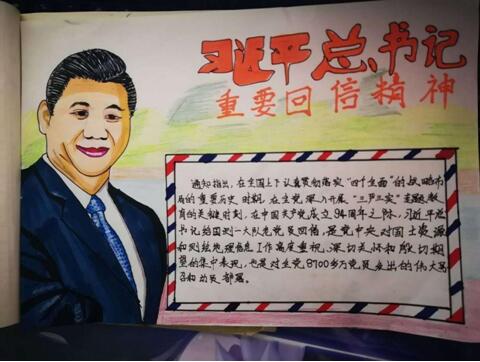 习近平总书记
重要回信精神
通知指出,在全国上下认真贯彻落实"四个全面"的战略布
局的重要历史时期,在全党深入开展"三严三实"专题教
育的关键时刻,在中国共产党成立94周年之际,习近平总
书记给国测一大队老党员回信,是党中央对国土资源
和测绘地理信息工作高度重视、深切关怀和殷切期
望的集中表现,也是对全党8700多万党员发出的伟大号
召和动员部署。